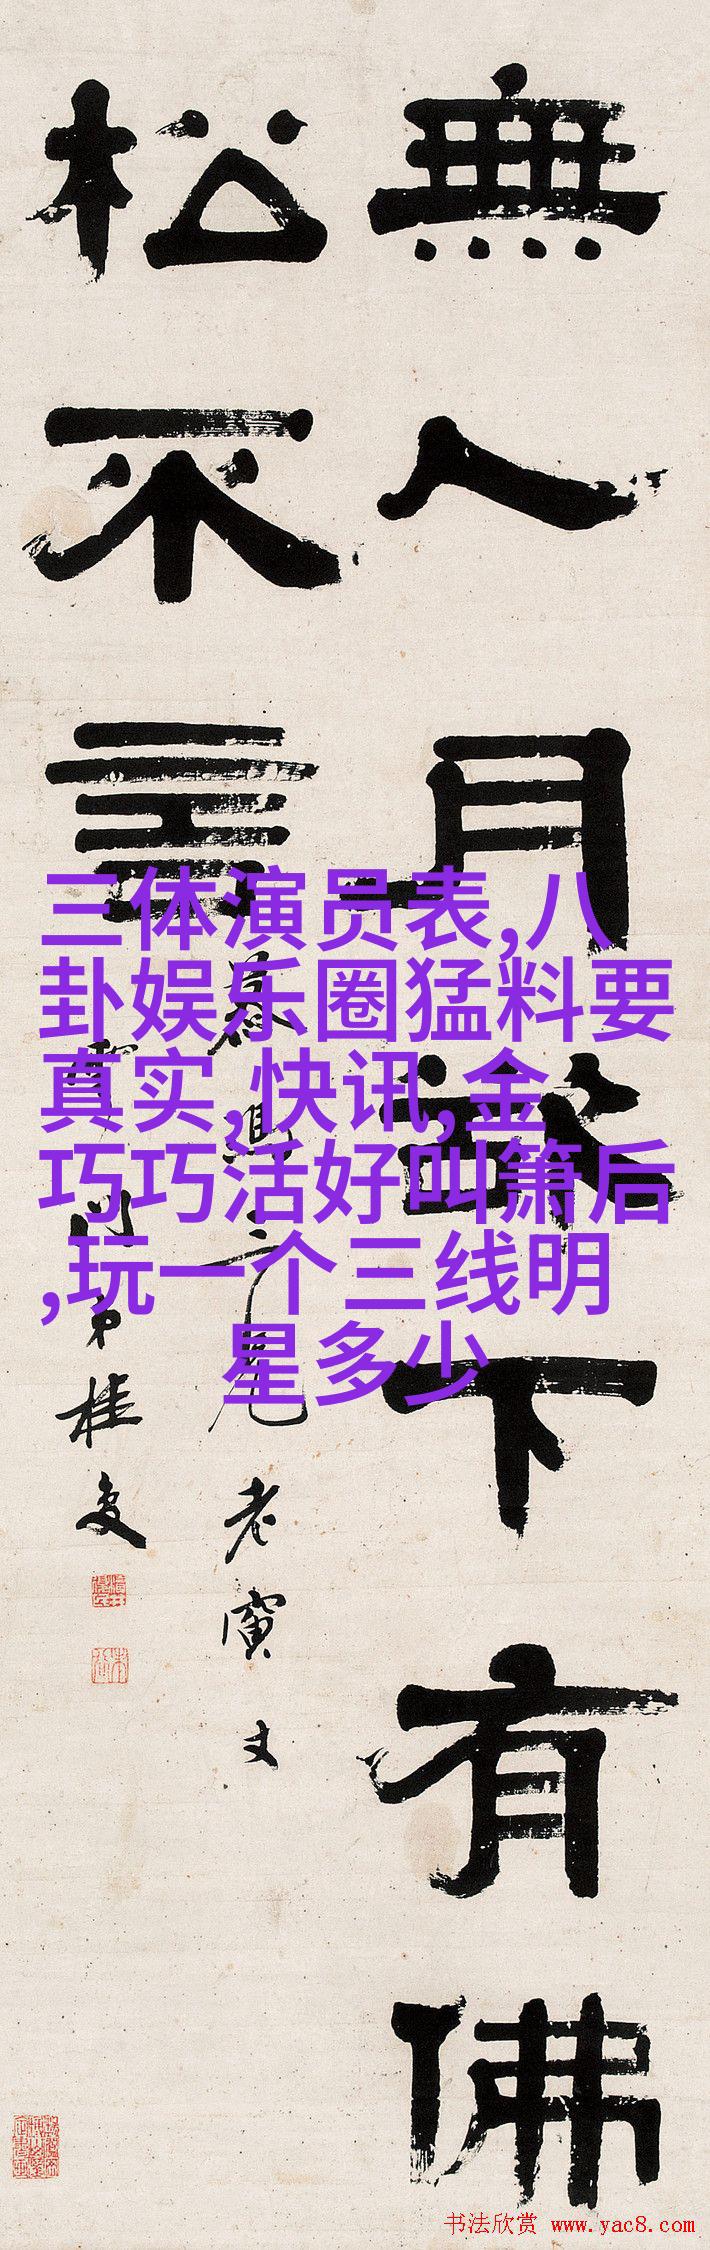 無人月下有佛
松不言
三兄老寅丈
弟桂
三体演员表,八
卦娱乐圈猛料要
真实,快讯,金
巧巧活好叫箫后
,玩一个三线明
星多少
书法欣赏 www.yac8.com